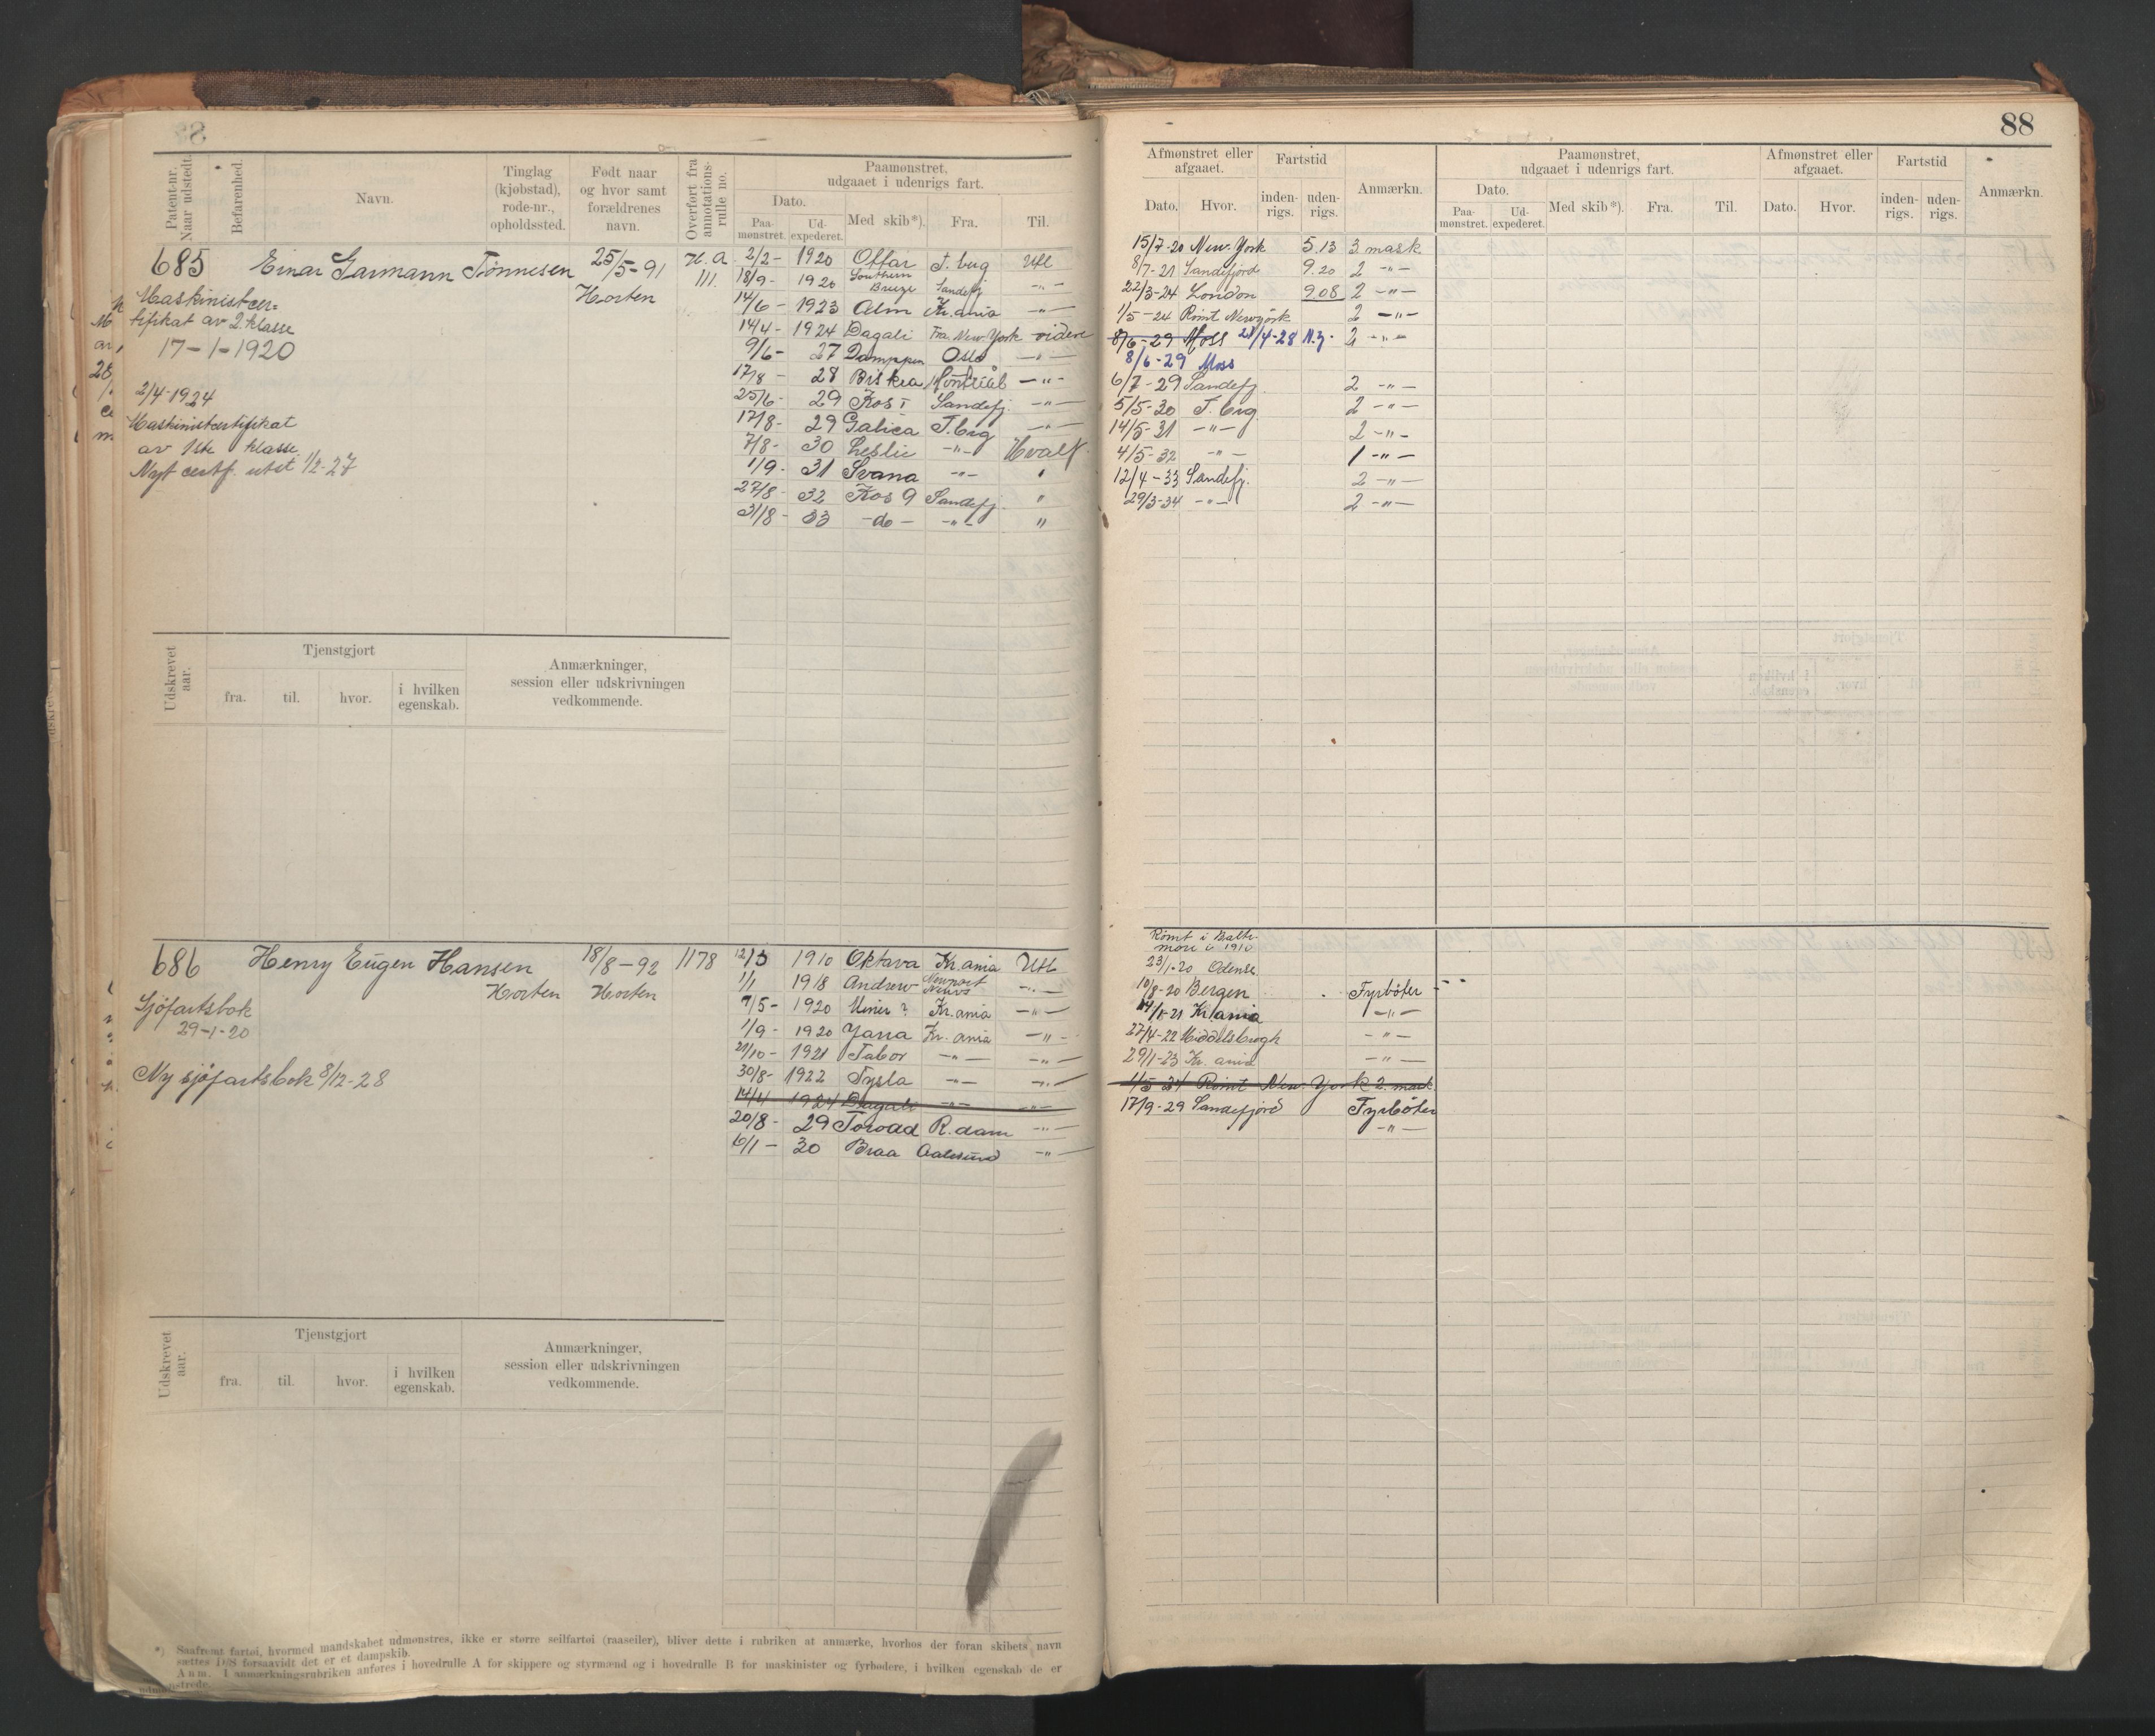 88
Patent-nr. Naar udstedt.
Befarenhed.
Navn.
Tinglag (kjøbstad), rode-nr., opholdssted.
Født naar og hvor samt forældrenes navn.
Overført fra annotations-rulle no.
Paamønstret, udgaaet i udenrigs fart.
Dato.
Paa-mønstret.
Ud-expederet.
Med skib*).
Fra.
Til.
Afmønstret eller afgaaet.
Dato.
Hvor.
Fartstid
inden-rigs.
uden-rigs.
Anmærkn.
Paamønstret, udgaaet i udenrigs fart.
Dato.
Paa-mønstret.
Ud-expederet.
Med skib*).
Fra.
Til.
Afmønstret eller afgaaet.
Dato.
Hvor.
Fartstid
inden-rigs.
uden-rigs.
Anmærkn.
685 Einar Garmann Tønnesen 25/5-91 H.A
Horten III.
Maskinistcer=
tifikat av 2. klasse
17-1-1920
2/4-1924
Maskinistcertifikat
av 1ste klasse
Nyt certf. utst 1/2-27
2/2- 1920 Offar T.berg Utl
18/9- 1920 Southern Breeze Sandefj -"-
14/6- 1923 Alm Kr.ania -"-
14/4- 1924 Dagali Fra New York videre
9/6- 27 Oslo -"-
17/8- 28 Biskra Montreal -"-
25/6- 29 Kos I Sandefj. -"-
17/8- 29 Galica T.brg -"-
7/8- 30 Leslie -"- Hvalf.
1/9- 31 Svana -"- "
27/8- 32 Kos 9 Sandefj. "
31/8- 33 -do- -"- "
15/7-20 New York 5.13 3 mask
8/7-21 Sandefjord 9.20 2 -"-
22/3-24 London 9.08 2 -"-
1/5-24 Rømt Newyork 2 -"-
8/6-29 Moss 28/4-28 N.Y. 2 -"-
8/6-29 Moss
6/7-29 Sandefj. 2 -"-
5/5-30 T.brg 2 -"-
14/5-31 -"- 2 -"-
4/5-32 -"- 1 -"-
12/4-33 Sandefj. 2 -"-
29/3-34 -"- 2 -"-
Udskrevet aar.
Tjenstgjort
fra.
til.
hvor.
i hvilken egenskab.
Anmærkninger,
session eller udskrivningen
vedkommende.
686 Henry Eugen Hansen 18/8-92 1178
Horten Horten
Sjöfartsbok
29-1-20
Ny sjöfartsbok 8/12-28
12/3 1910 Oktava Kr.ania Utl
1/1 1918 Andrew Newport News -"-
7/5- 1920 Miner ? Kr.ania -"-
1/9- 1920 Jana Kr. ania -"-
21/10- 1921 Tabor -"- -"-
30/8- 1922 Tysla -"- -"-
14/4 1924 Dagali -"- -"-
20/8- 29 Toroad R.dam -"-
6/1- 30 Braa Aalesund -"-
Rømt i Balti-
more i 1910
23/1-20 Odense
10/8-20 Bergen Fyrböter
Kr.ania -"-
27/4-22 Middelsbrogh -"-
29/1-23 Kr. ania -"-
1/5-24 Rømt New York 2. mask
17/9-29 Sandefjord Fyrböter
-"-
Udskrevet aar.
Tjenstgjort
fra.
til.
hvor.
i hvilken egenskab.
Anmærkninger,
session eller udskrivningen
vedkommende.
*) Saafremt fartøi, hvormed mandskabet udmønstres, ikke er større seilfartøi (raaseiler), bliver dette i rubriken at anmærke, hvorhos der foran skibets navn
sættes D/S forsaavidt det er et dampskib.
Anm. I anmærkningsrubriken anføres i hovedrulle A for skippere og styrmænd og i hovedrulle B for maskinister og fyrbødere, i hvilken egenskab de er
udmønstrede.